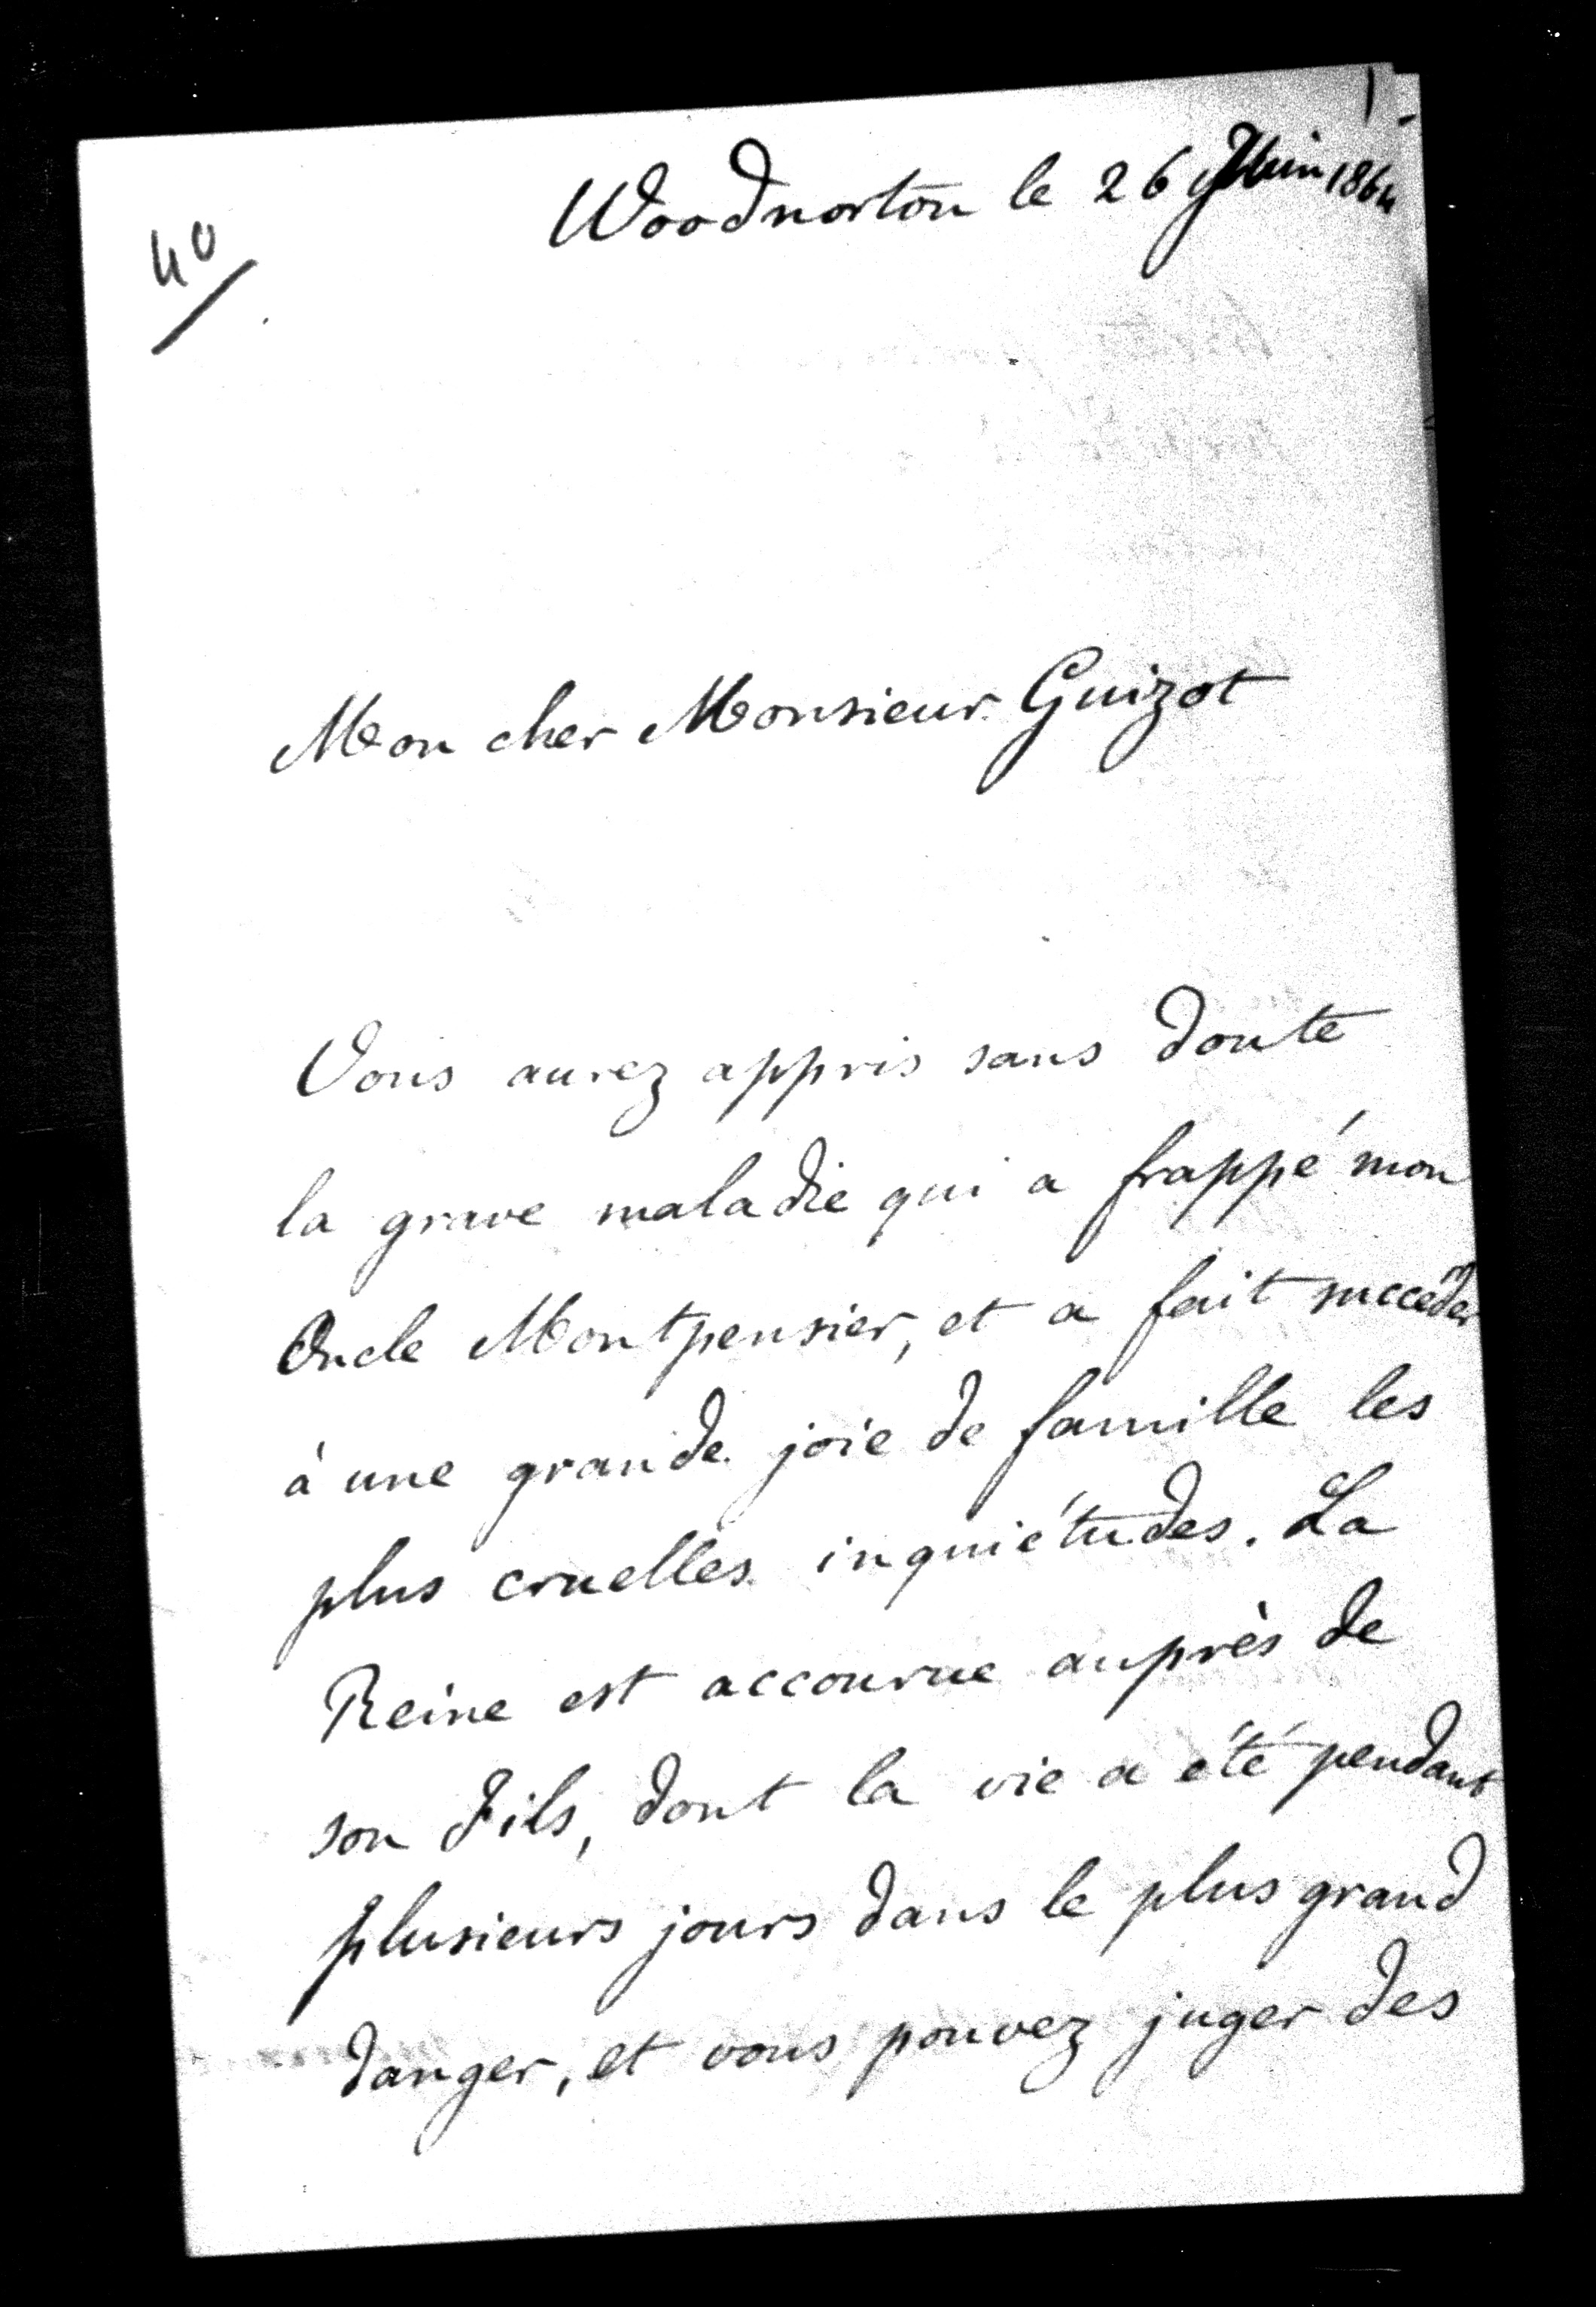 40
Woodnorton le 26 Juin 1864
Mon cher Monsieur Guizot
Vous aurez appris sans doute
la grave maladie qui a frappé mon
Oncle Montpensier, et a fait succéder
à une grande joie de famille les
plus cruelles inquiétudes. La
Reine est accourue auprès de
son Fils, dont la vie a été pendant
plusieurs jours dans le plus grand
danger, et vous pouvez juger des